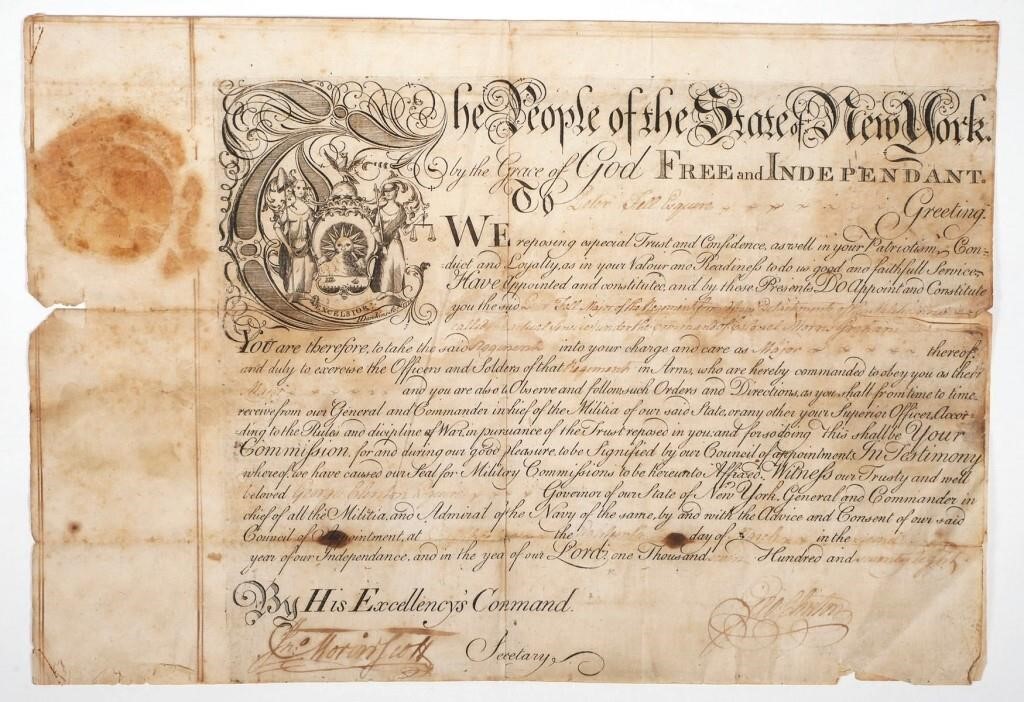 The People of the State of New York.
by the Grace of God FREE and INDEPENDANT.
To Peter Fell Esquire Greeting:
WE reposing especial Trust and Confidence, as well in your Patriotism, Con-
duct and Loyalty, as in your Valour and Readiness to do us good and faithfull Service
Have appointed and constituted, and by these Presents, DO Appoint and Constitute
you the said Fell Major of the Regiment
EXCELSIOR
called under the command of Colonel Morris Graham
You are therefore, to take the said Regiment into your charge and care as Major thereof,
and duly to exercise the Officers and Solders of that Regiment in Arms, who are hereby commanded to obey you as their
Major and you are also to Observe and follow such Orders and Directions, as you shall from time to time
receive from our General and Commander in chief of the Militia of our said State, or any other your Superior Officer, Accor-
ding to the Rules and dicipline of War, in pursuance of the Trust reposed in you; and for so doing this shall be Your
Commission, for and during our good pleasure, to be Signified by our Council of appointments. In Testimony
whereof, we have caused our Seal for Military Commissions to be hereunto Affixed. Witness our Trusty and well
beloved George Clinton Esquire Governor of our State of New York, General and Commander in
chief of all the Militia, and Admiral of the Navy of the same, by and with the Advice and Consent of our said
Council of Appointment, at the day of March in the
year of our Independance, and in the yea of our Lord, one Thousand Seven Hundred and Seventy Eight
By His Excellency's Command. Geo Clinton
Jno. Morin Scott Secretary